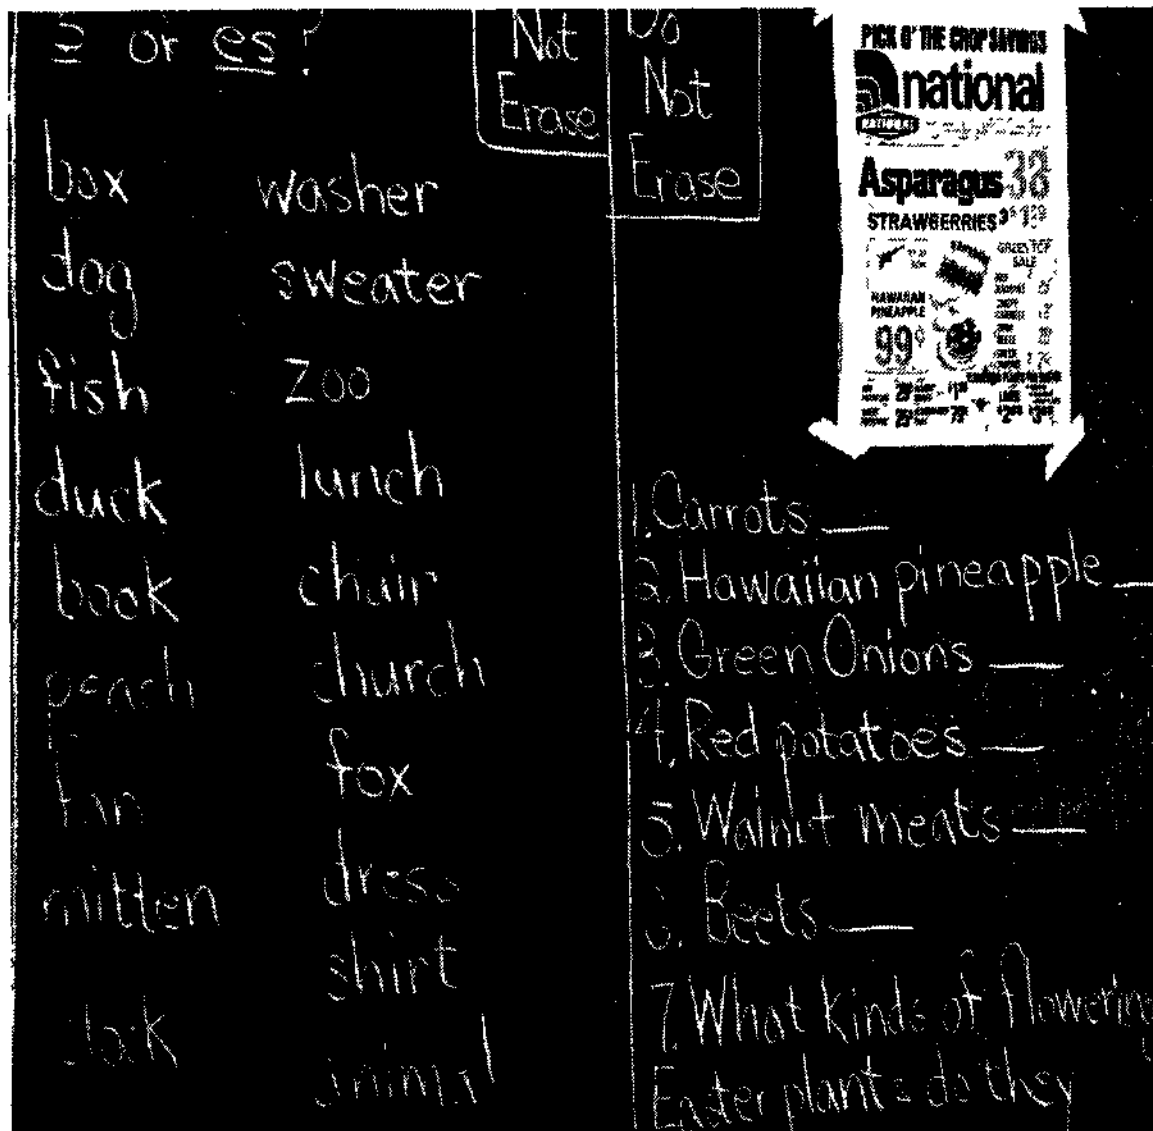 s or es?
box
dog
fish
duck
book
peach
fan
mitten
clock
washer
sweater
zoo
lunch
chair
church
fox
dress
shirt
animal
Not
Erase
Do
Not
Erase
PICK O' THE CROP SAVINGS
national
NATIONAL
Asparagus 38
STRAWBERRIES
GREEN TOP
SALE
HAWAIIAN
PINEAPPLE
99¢
1. Carrots
2. Hawaiian pineapple
3. Green Onions
4. Red potatoes
5. Walnut meats
6. Beets
7. What kinds of flowering
Easter plants do they